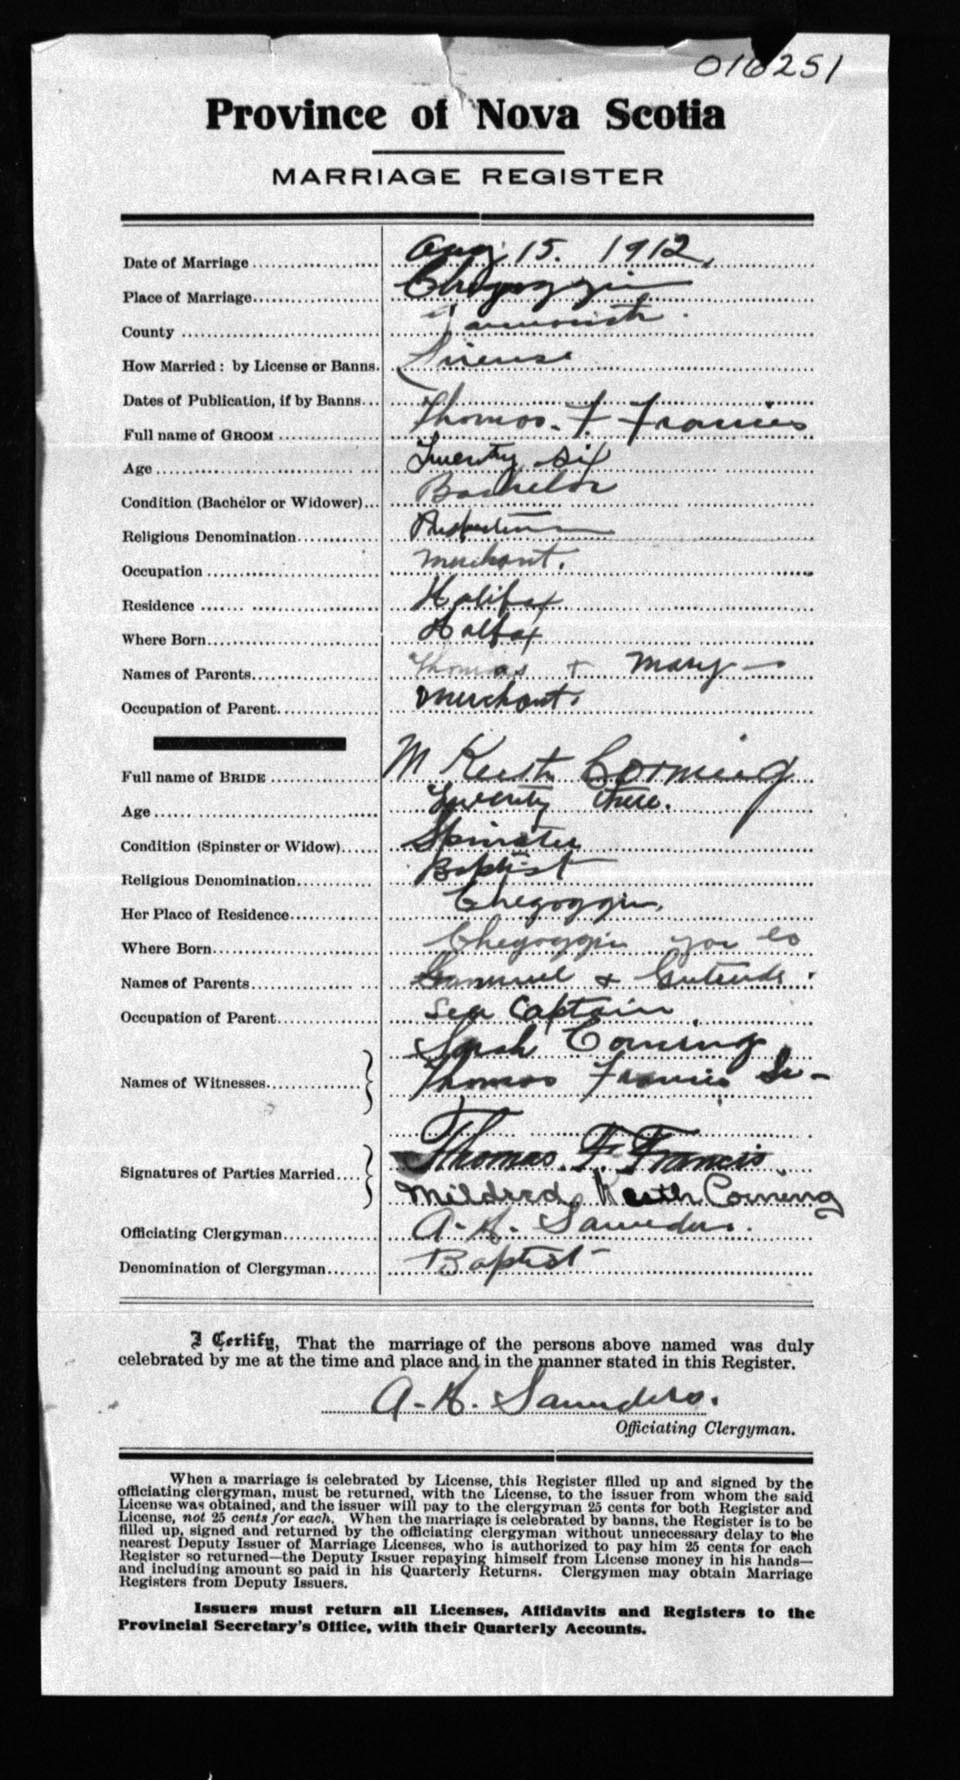 016251
Province of Nova Scotia
MARRIAGE REGISTER
Date of Marriage Aug 15. 1912.
Place of Marriage Chegoggin
County Yarmouth
How Married: by License or Banns. Lisense
Dates of Publication, if by Banns
Full name of GROOM Thomas. F. Francis
Age Twenty six
Condition (Bachelor or Widower) Bachelor
Religious Denomination
Occupation Merchant.
Residence Halifax
Where Born Halfax
Names of Parents Thomas + Mary
Occupation of Parent Merchant.
Full name of BRIDE M Keith Corning
Age Twenty three.
Condition (Spinster or Widow) Spinster
Religious Denomination Baptist
Her Place of Residence Chegoggin
Where Born Chegoggin Yar Co
Names of Parents Samuel &
Occupation of Parent Sea Captain
Names of Witnesses Sarah Corning
Thomas Francis Sr -
Signatures of Parties Married Thomas. F. Francis.
Mildred Keith Corning
Officiating Clergyman A. H. Saunders.
Denomination of Clergyman Baptist
I Certify, That the marriage of the persons above named was duly
celebrated by me at the time and place and in the manner stated in this Register.
A. H. Saunders.
Officiating Clergyman.
When a marriage is celebrated by License, this Register filled up and signed by the
officiating clergyman, must be returned, with the License, to the issuer from whom the said
License was obtained, and the issuer will pay to the clergyman 25 cents for both Register and
License, not 25 cents for each. When the marriage is celebrated by banns, the Register is to be
filled up, signed and returned by the officiating clergyman without unnecessary delay to the
nearest Deputy Issuer of Marriage Licenses, who is authorized to pay him 25 cents for each
Register so returned—the Deputy Issuer repaying himself from License money in his hands—
and including amount so paid in his Quarterly Returns. Clergymen may obtain Marriage
Registers from Deputy Issuers.
Issuers must return all Licenses, Affidavits and Registers to the
Provincial Secretary's Office, with their Quarterly Accounts.